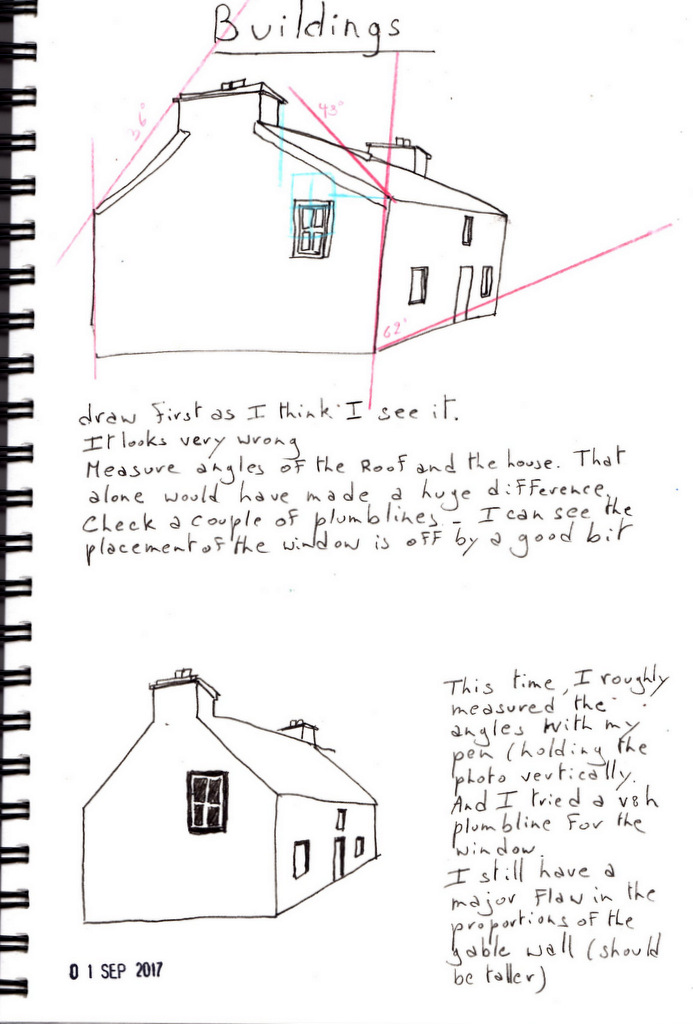 Buildings
56°
43°
62°
draw first as I think I see it.
It looks very wrong
Measure angles of the Roof and the house. That
alone would have made a huge difference.
Check a couple of plumblines - I can see the
placement of the window is off by a good bit
This time, I roughly
measured the
angles with my
pen (holding the
photo vertically.
And I tried a v&h
plumbline for the
window.
I still have a
major flaw in the
proportions of the
gable wall (should
be taller)
01 SEP 2017